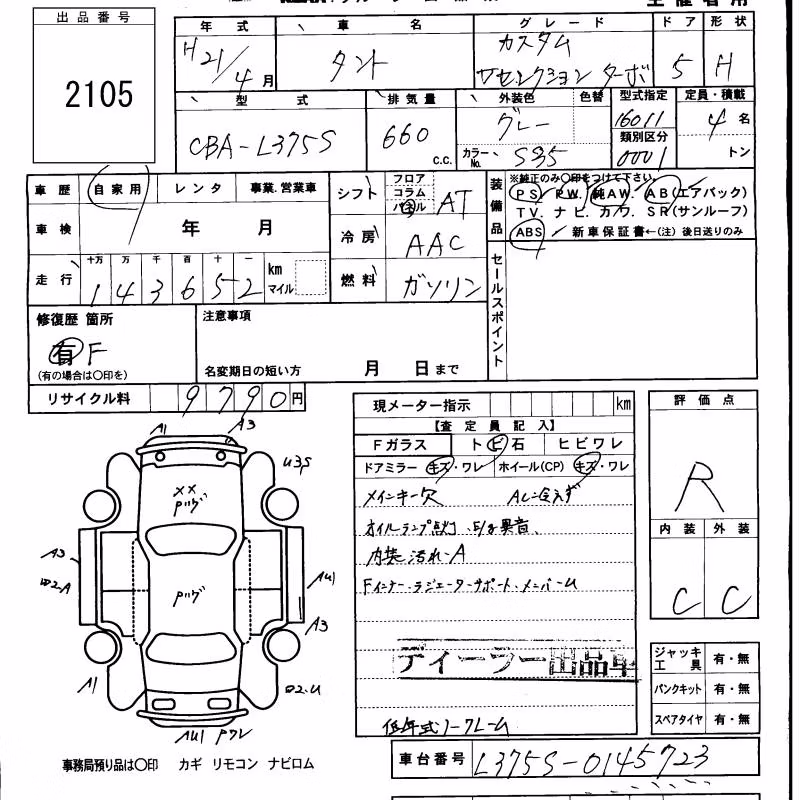 出品番号
2105
年式 車名 グレード ドア 形状
H21/4月 タント カスタム
Vセレクション ターボ 5 H
型式 排気量 外装色 色替 型式指定 定員・積載
CBA-L375S 660 c.c. グレー 16011 4名
カラーNo. S35 類別区分 0001 トン
車歴 自家用 レンタ 事業.営業車
シフト フロア コラム パネル AT
装備品 ※純正のみ〇印をつけて下さい。
PS. PW. 純AW. AB(エアバック)
TV. ナビ. カワ. SR(サンルーフ)
ABS 新車保証書←(注) 後日送りのみ
車検 年 月
冷房 AAC
走行 十万 万 千 百 十 一
143652 km マイル
燃料 ガソリン
セールスポイント
修復歴 箇所 注意事項
有 F
(有の場合は〇印を) 名変期日の短い方 月 日まで
リサイクル料 9790円
現メーター指示 km
【査定員記入】
Fガラス トビ石 ヒビワレ
ドアミラー キズ・ワレ ホイール(CP) キズ・ワレ
メインキー欠
オイルランプ点灯、E/g異音、
内装汚れ-A
Fインナーラジエーターサポート、メンバーU
ディーラー出品車
低年式ノークレーム
評価点
R
内装 外装
C C
A1 A3
U3S
XX
Pハゲ
A3
Pハゲ
AU1
A3
A1
AU1 Pワレ
ジャッキ工具 有・無
パンクキット 有・無
スペアタイヤ 有・無
事務局預り品は〇印 カギ リモコン ナビロム
車台番号 L375S-0145723